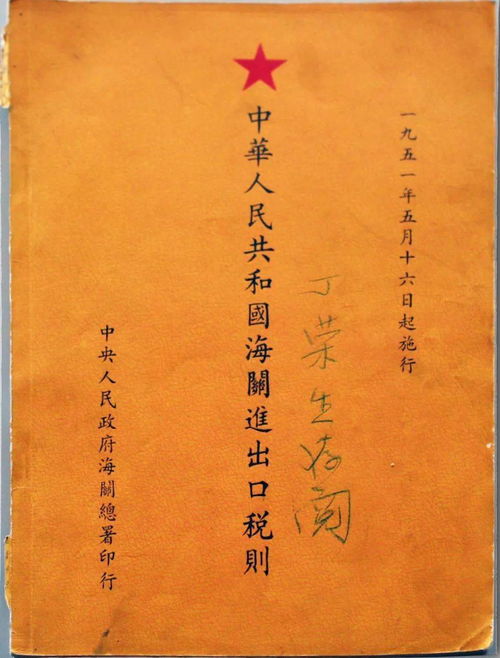 一九五一年五月十六日起施行
中華人民共和國海關進出口税則
丁荣生存阅
中央人民政府海關總署印行